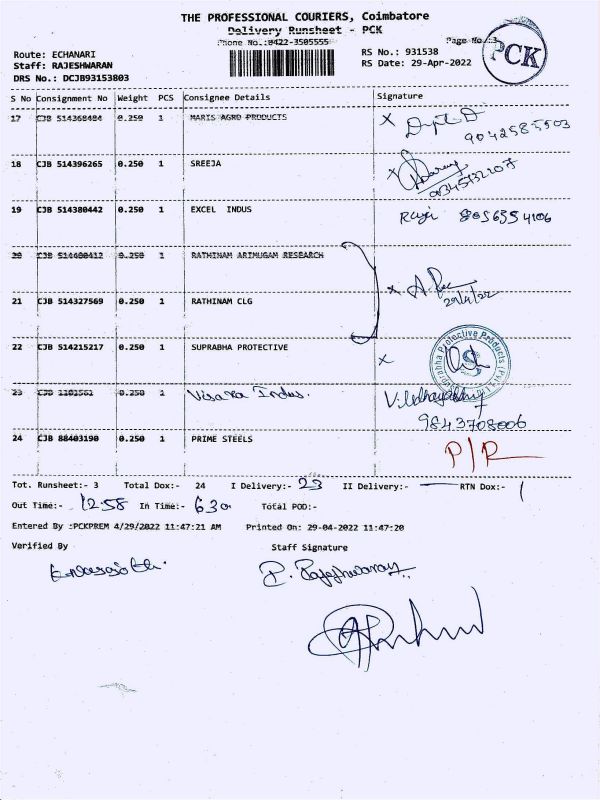 THE PROFESSIONAL COURIERS, Coimbatore
Delivery Runsheet - PCK
Phone No.:0422-3505555
Page No.:3
PCK
Route: ECHANARI
Staff: RAJESHWARAN
DRS No.: DCJB93153803
RS No.: 931538
RS Date: 29-Apr-2022
S No Consignment No Weight PCS Consignee Details Signature
17 CJB 514368484 0.250 1 MARIS AGRO PRODUCTS X
9042585503
18 CJB 514396265 0.250 1 SREEJA X
19 CJB 514380442 0.250 1 EXCEL INDUS 8056354106
20 CJB 514400412 0.250 1 RATHINAM ARIMUGAM RESEARCH
X
29/4/22
21 CJB 514327569 0.250 1 RATHINAM CLG
22 CJB 514215217 0.250 1 SUPRABHA PROTECTIVE X
Suprabha Protective Products (Pvt) Ltd
23 CJB 1101561 0.250 1 Indus.
9843708006
24 CJB 88403190 0.250 1 PRIME STEELS P/R
Tot. Runsheet:- 3 Total Dox:- 24 I Delivery:- 23 II Delivery:- RTN Dox:- 1
Out Time:- 12.58 In Time:- 6.30 Total POD:-
Entered By :PCKPREM 4/29/2022 11:47:21 AM Printed On: 29-04-2022 11:47:20
Verified By Staff Signature
P. Rajeshwaran